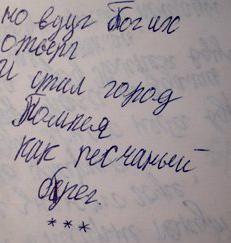 но вдруг Бог их
отверг
И стал город
Помпея
как песчаный
берег.
***